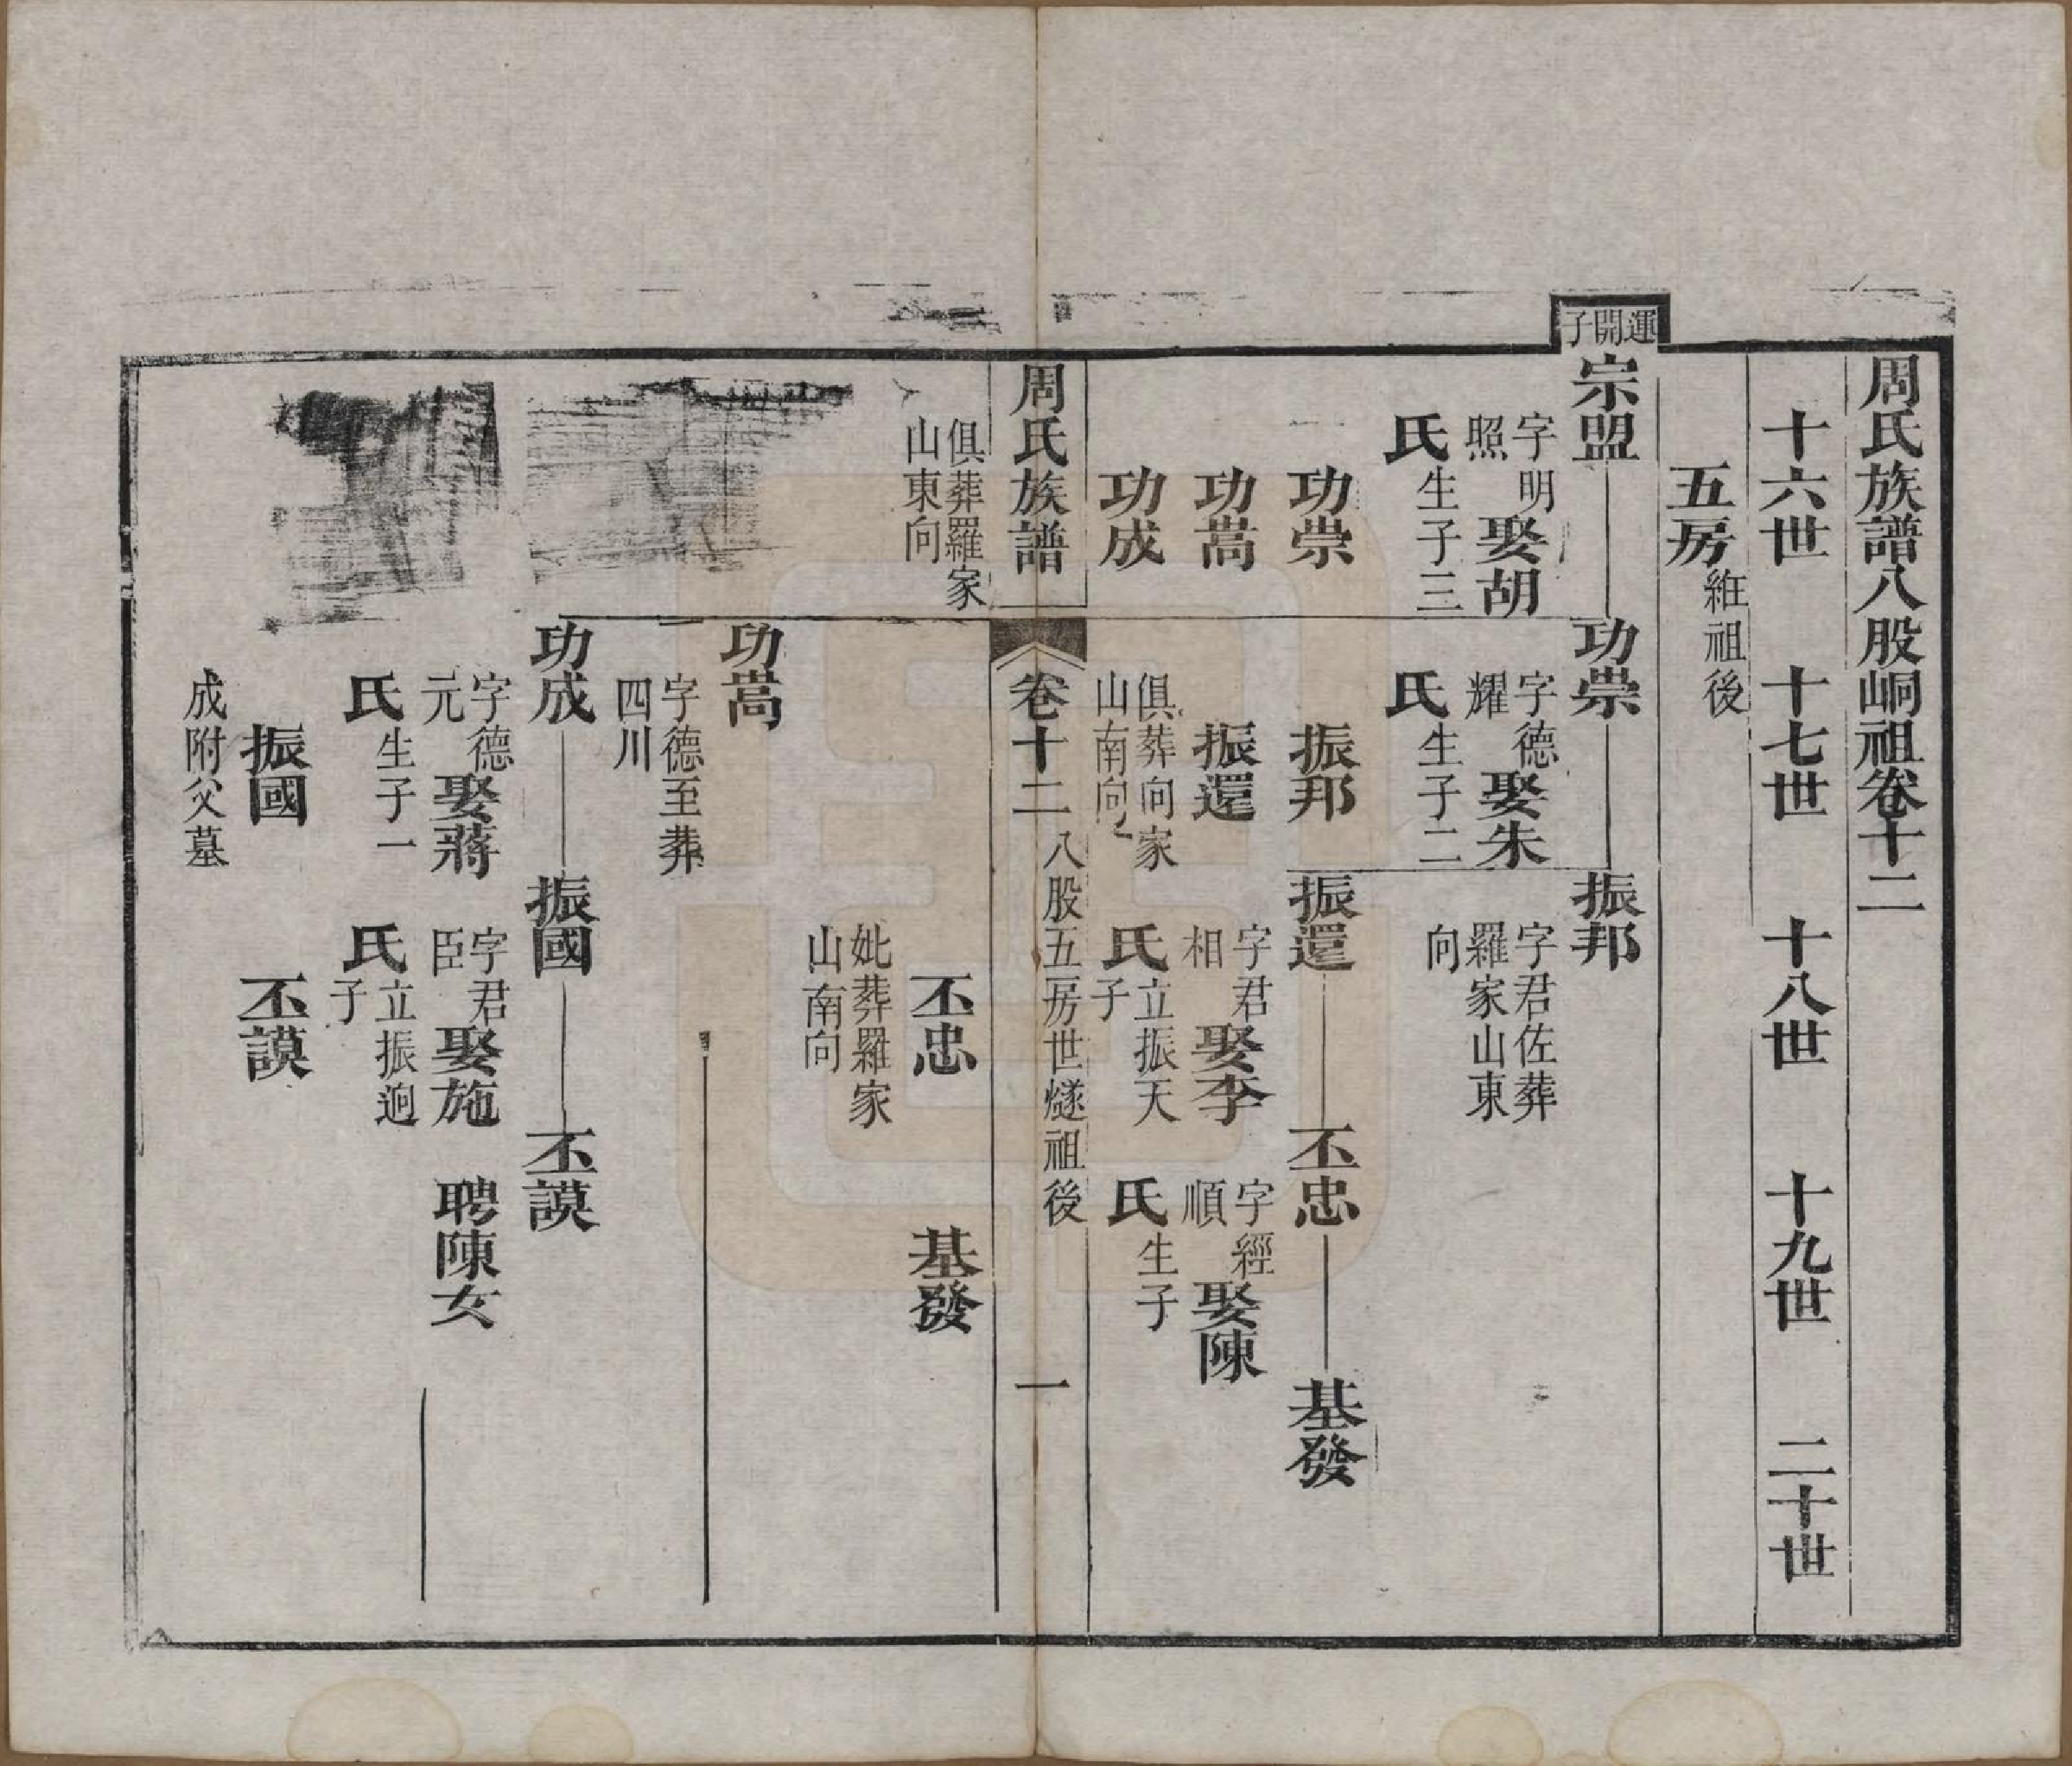 周氏族譜八股峒祖卷十二
十六世 十七世 十八世 十九世 二十世
五房維祖後
運開子
宗盟
字明照娶胡氏生子三
功崇
功嵩
功成
俱葬羅家山東向
功崇
字德耀娶朱氏生子二
振邦
振還
俱葬向家山南向
振邦
字君佐葬羅家山東向
振還
字君相娶李氏立振天子
丕忠
妣葬羅家山南向
丕忠
字經順娶陳氏生子
基發
基發
周氏族譜
卷十二
八股五房世燧祖後
一
功嵩
字德至葬四川
功成
字德元娶蔣氏生子一
振國
成附父墓
振國
字君臣娶施氏立振迥子
丕謨
丕謨
聘陳女